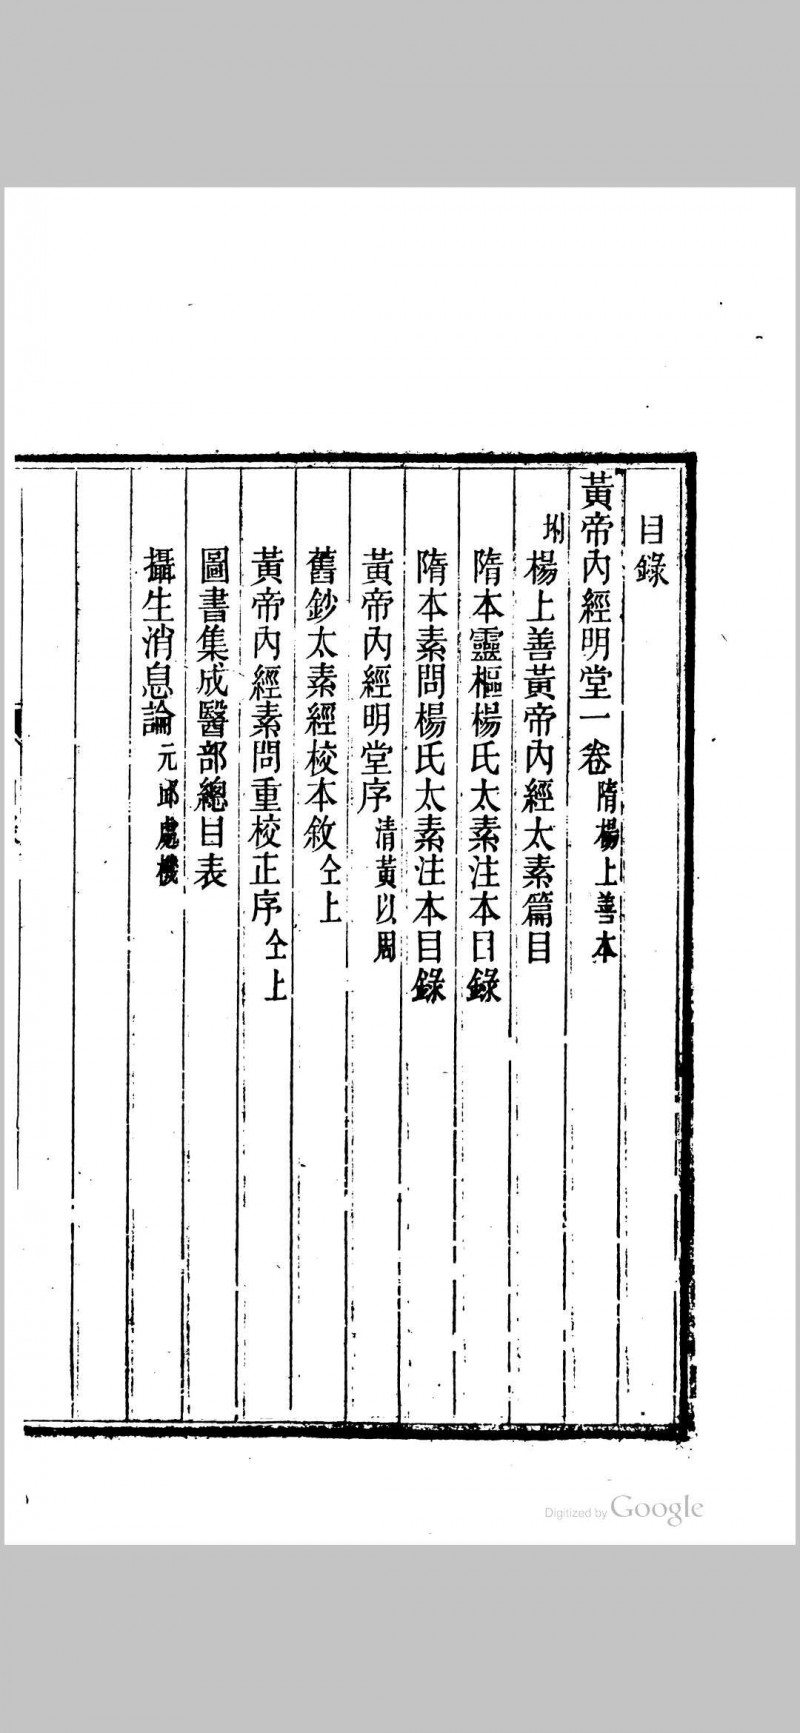 目錄
黃帝內經明堂一卷 隋楊上善本
坿 楊上善黃帝內經太素篇目
隋本靈樞楊氏太素注本目錄
隋本素問楊氏太素注本目錄
黃帝內經明堂序 清黃以周
舊鈔太素經校本敘 仝上
黃帝內經素問重校正序 仝上
圖書集成醫部總目表
攝生消息論 元邱處機
Digitized by Google